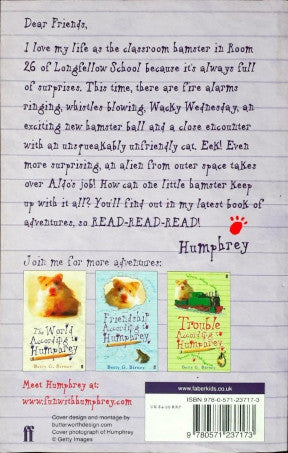 Dear Friends,
I love my life as the classroom hamster in Room
26 of Longfellow School because it's always full
of surprises. This time, there are fire alarms
ringing, whistles blowing, Wacky Wednesday, an
exciting new hamster ball and a close encounter
with an unsqueakably unfriendly cat. Eek! Even
more surprising, an alien from outer space takes
over Aldo's job! How can one little hamster keep
up with it all? You'll find out in my latest book of
adventures, so READ-READ-READ!
Humphrey
Join me for more adventures:
The World
According to
Humphrey
Betty G. Birney
Friendship
According to
Humphrey
Betty G. Birney
Trouble
According to
Humphrey
Betty G. Birney
Meet Humphrey at:
www.funwithhumphrey.com
Cover design and montage by
butterworthdesign.com
Cover photograph of Humphrey
© Getty Images
ff
www.faberkids.co.uk
ISBN 978-0-571-23717-3
9 780571 237173